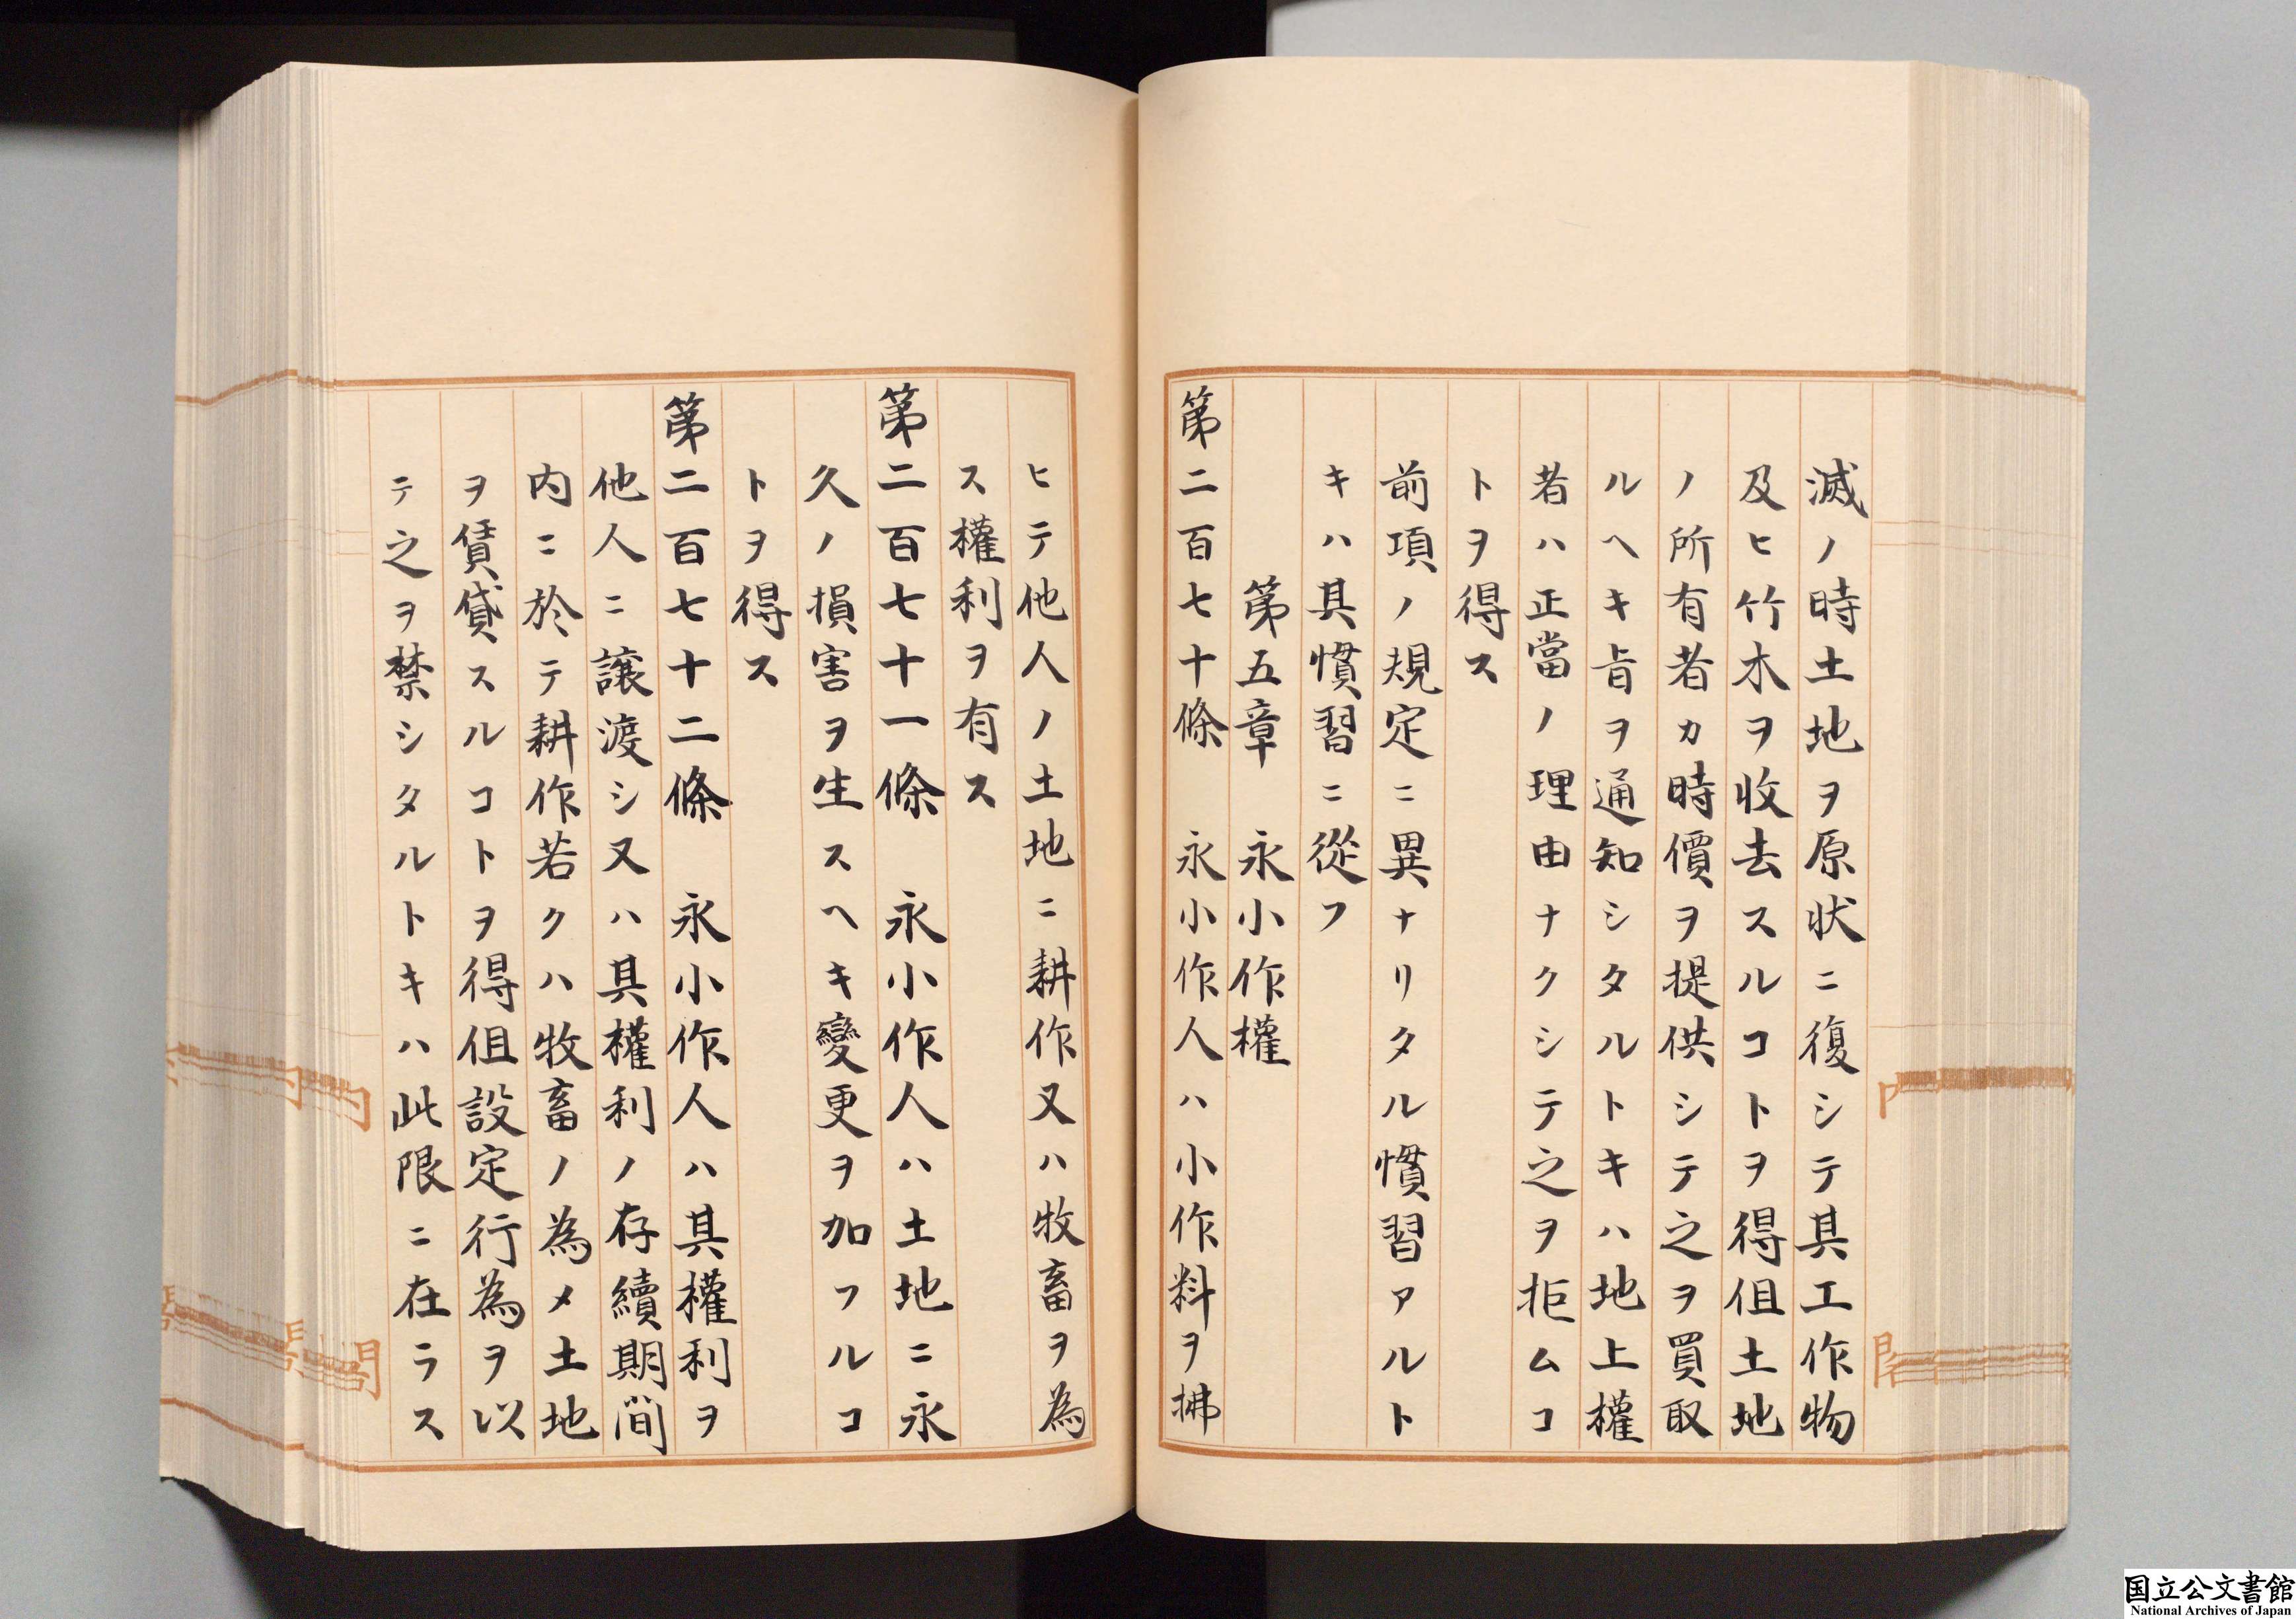 滅ノ時土地ヲ原状ニ復シテ其工作物
及ヒ竹木ヲ收去スルコトヲ得但土地
ノ所有者カ時價ヲ提供シテ之ヲ買取
ルヘキ旨ヲ通知シタルトキハ地上權
者ハ正當ノ理由ナクシテ之ヲ拒ムコ
トヲ得ス
前項ノ規定ニ異ナリタル慣習アルト
キハ其慣習ニ從フ
第五章 永小作權
第二百七十條 永小作人ハ小作料ヲ拂
ヒテ他人ノ土地ニ耕作又ハ牧畜ヲ為
ス權利ヲ有ス
第二百七十一條 永小作人ハ土地ニ永
久ノ損害ヲ生スヘキ變更ヲ加フルコ
トヲ得ス
第二百七十二條 永小作人ハ其權利ヲ
他人ニ譲渡シ又ハ其權利ノ存續期間
内ニ於テ耕作若クハ牧畜ノ為メ土地
ヲ賃貸スルコトヲ得但設定行為ヲ以
テ之ヲ禁シタルトキハ此限ニ在ラス
国立公文書館
National Archives of Japan